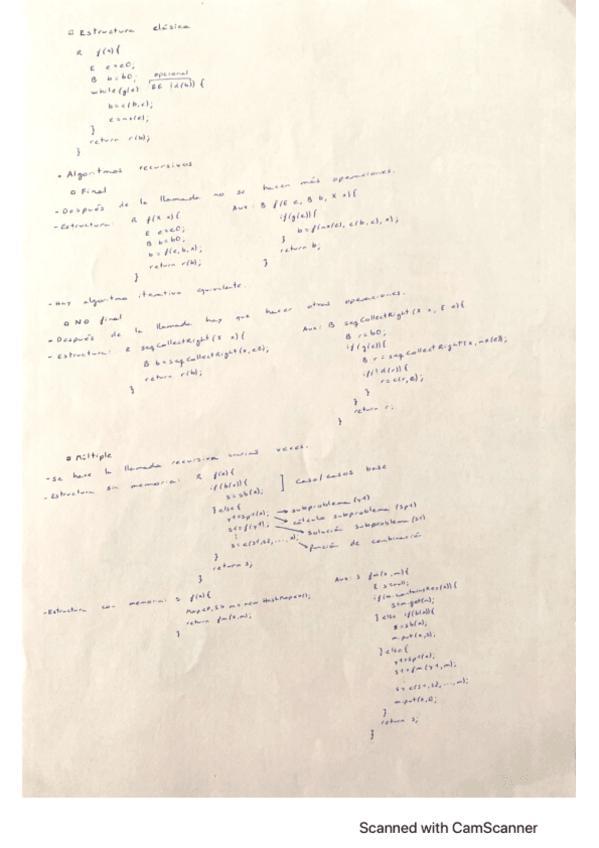 Estructura clásica
R f(x){
E e=e0;
B b=b0; opcional
while(g(e) && !d(b)) {
b=c(b,e);
e=nx(e);
}
return r(b);
}
• Algoritmos recursivos
Final
- Después de la llamada no se hacen más operaciones.
- Estructura: R f(X x){
E e=e0;
B b=b0;
b=f(e,b,x);
return r(b);
}
Aux: B f(E e, B b, X x){
if(g(e)){
b=f(nx(e), c(b,e), x);
}
return b;
}
- Hay algoritmo iterativo equivalente.
NO final
- Después de la llamada hay que hacer otras operaciones.
- Estructura: R seqCollectRight(X x){
B b=seqCollectRight(x,e0);
return r(b);
}
Aux: B seqCollectRight(X x, E e){
B r=b0;
if(g(e)){
B r=seqCollectRight(x,nx(e));
if(!d(r)){
r=c(r,e);
}
}
return r;
}
Múltiple
- Se hace la llamada recursiva varias veces.
- Estructura sin memoria: R f(x){
if(b(x)){
s=sb(x);
] caso/casos base
}else{
y1=sp1(x); → subproblema (y1)
s1=f(y1); → cálculo subproblema (sp1)
⋮ → solución subproblema (s1)
s=c(s1,s2,...,x); → función de combinación
}
return s;
}
- Estructura con memoria: S f(x){
Map<P,S> m=new HashMap<>();
return fm(x,m);
}
Aux: S fm(x,m){
S s=null;
if(m.containsKey(x)){
s=m.get(x);
} else if(b(x)){
s=sb(x);
m.put(x,s);
} else{
y1=sp1(x);
s1=fm(y1,m);
s=c(s1,s2,...,m);
m.put(x,s);
}
return s;
}
Scanned with CamScanner